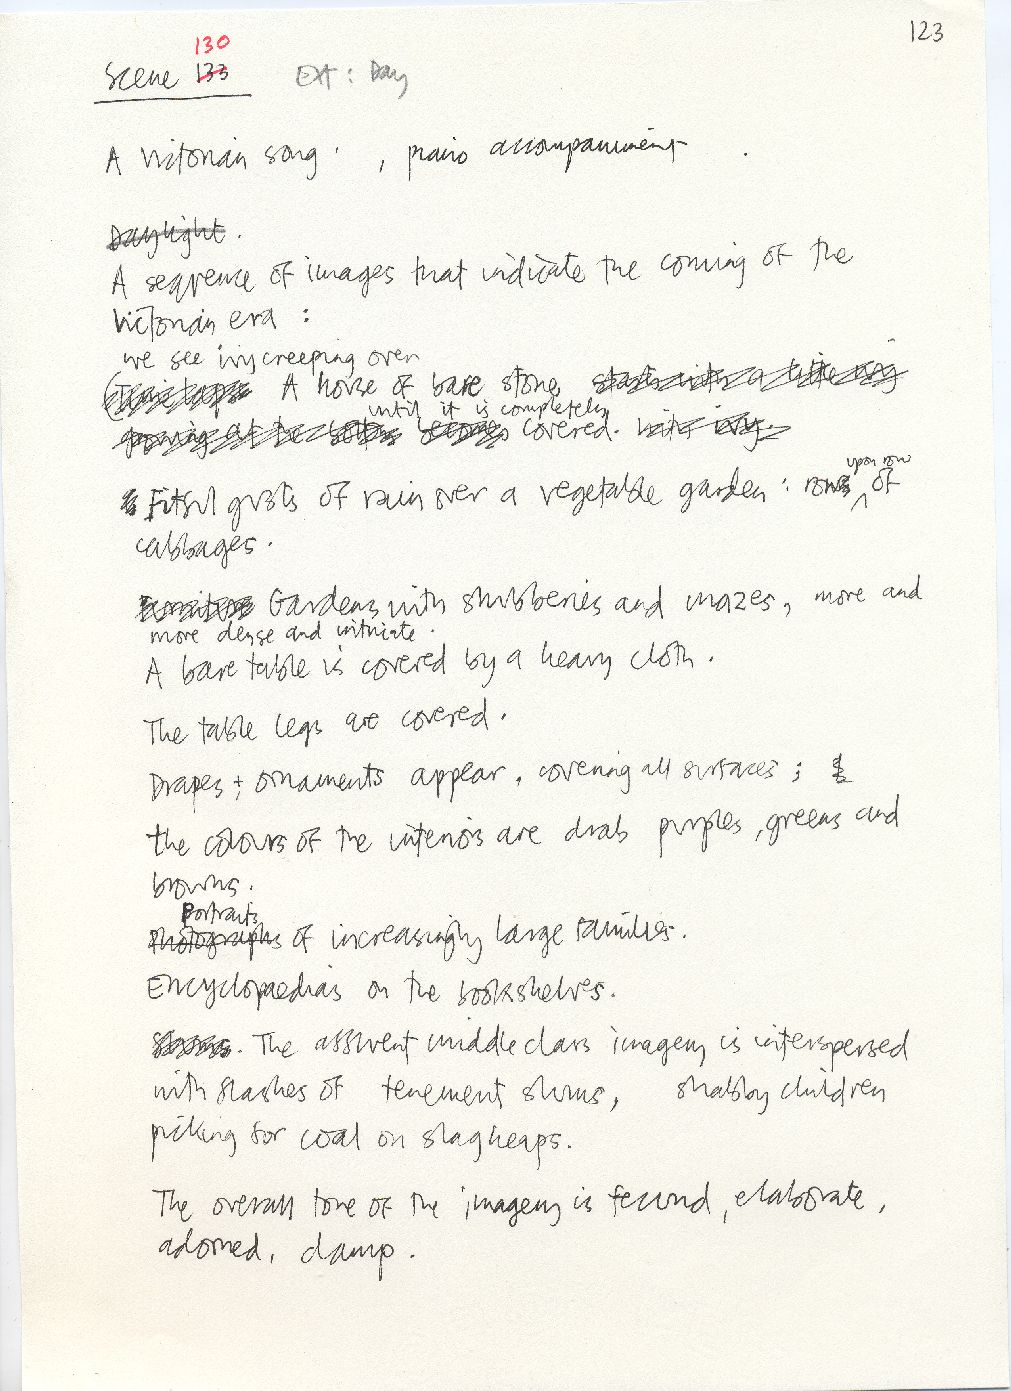 123
130
Scene 133 Ext : Day
A Victorian song , piano accompaniment .
Daylight.
A sequence of images that indicate the coming of the
Victorian era :
we see ivy creeping over
A house of bare stone, starts with a little ivy
until it is completely
growing at the bottom becomes covered. with ivy.
upon row
Fitful gusts of rain over a vegetable garden : rows of
cabbages.
Gardens with shrubberies and mazes, more and
more dense and intricate.
A bare table is covered by a heavy cloth.
The table legs are covered.
Drapes + ornaments appear, covering all surfaces ;
the colours of the interiors are drab purples, greens and
browns.
Portraits
Photographs of increasingly large families.
Encyclopaedias on the bookshelves.
The affluent middle class imagery is interspersed
with flashes of tenement slums, shabby children
picking for coal on slagheaps.
The overall tone of the imagery is fecund, elaborate,
adorned, damp.